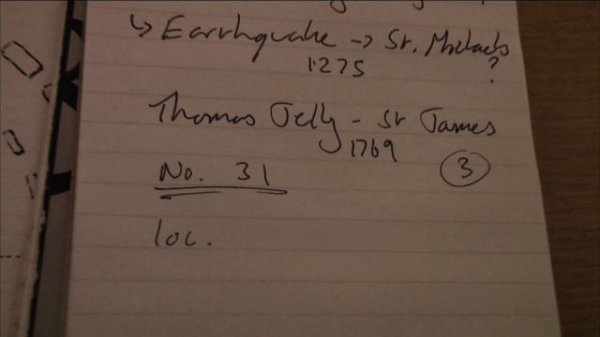 ↳ Earthquake → St. Michaels
1275 ?
Thomas Jelly - St James
1769
No. 31 3
loc.